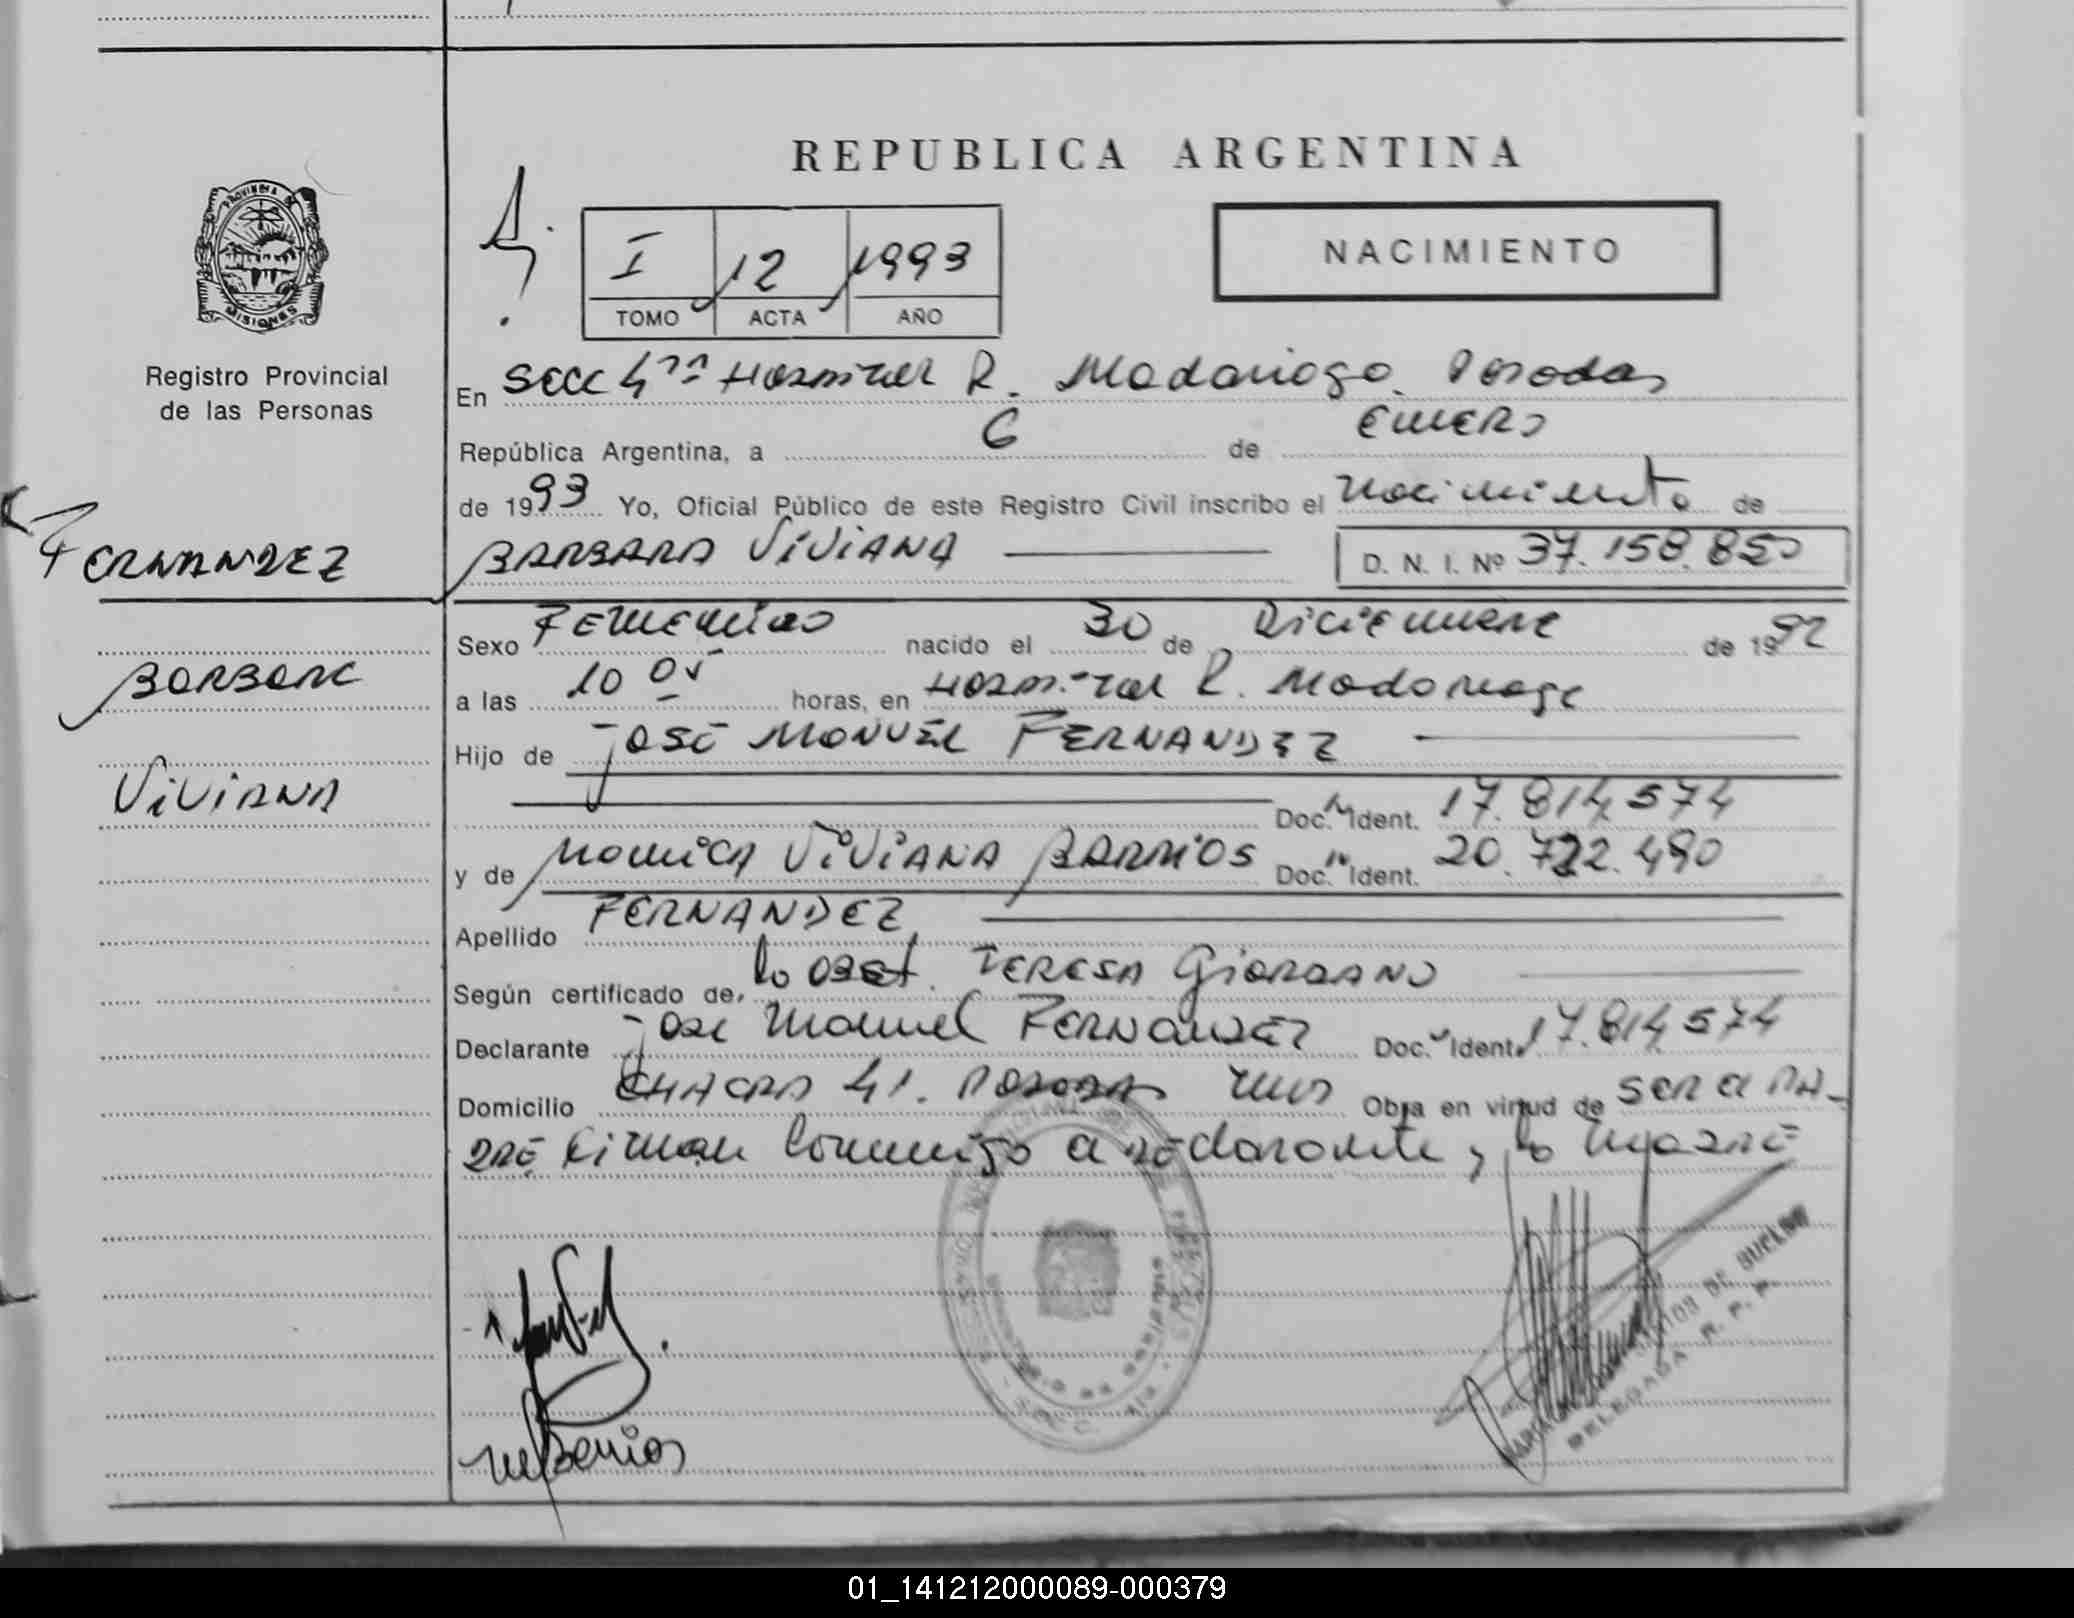 REPUBLICA ARGENTINA
PROVINCIA DE
MISIONES
Registro Provincial
de las Personas
I 12 1993
TOMO ACTA AÑO
NACIMIENTO
En Secc 4ta Hospital R. Madariaga. Posadas
República Argentina, a 6 de ENERO
de 1993 Yo, Oficial Público de este Registro Civil inscribo el Nacimiento de
FERNANDEZ
BARBARA VIVIANA D. N. I. Nº 37.158.850
Sexo FEMENINO nacido el 30 de Diciembre de 1992
BARBARA
a las 10 05 horas, en Hospital R. Madariaga
Hijo de José Manuel FERNANDEZ
VIVIANA
Doc. Ident. 17.814.574
y de MONICA VIVIANA BARRIOS Doc. Ident. 20.722.490
Apellido FERNANDEZ
Según certificado de, la obst. TERESA GIORDANO
Declarante José Manuel FERNANDEZ Doc. Ident. 17.814.574
Domicilio CHACRA 41. POSADAS Mnes Obra en virtud de SER el PA-
DRE Firman conmigo el declarante y la madre
M Barrios
DE BUENO
DELEGADA R. P. P.
01_141212000089-000379